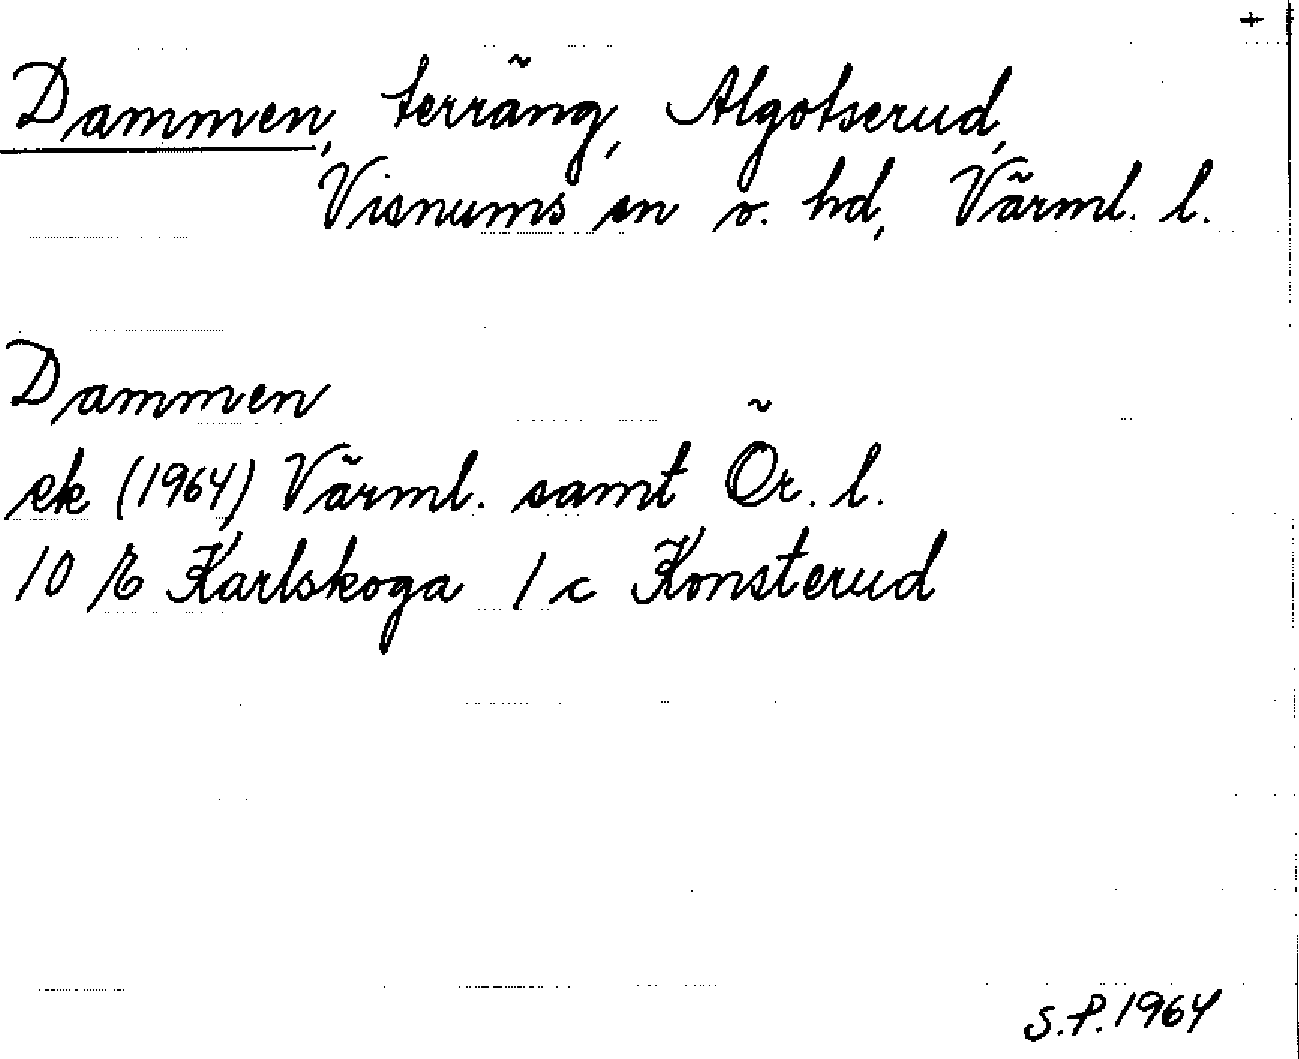 +
Dammen, terräng, Algotserud,
Visnums sn o. hd, Värml. l.
Dammen
ek (1964) Värml. samt Ör. l.
10 E Karlskoga 1 c Konsterud
S.P. 1964